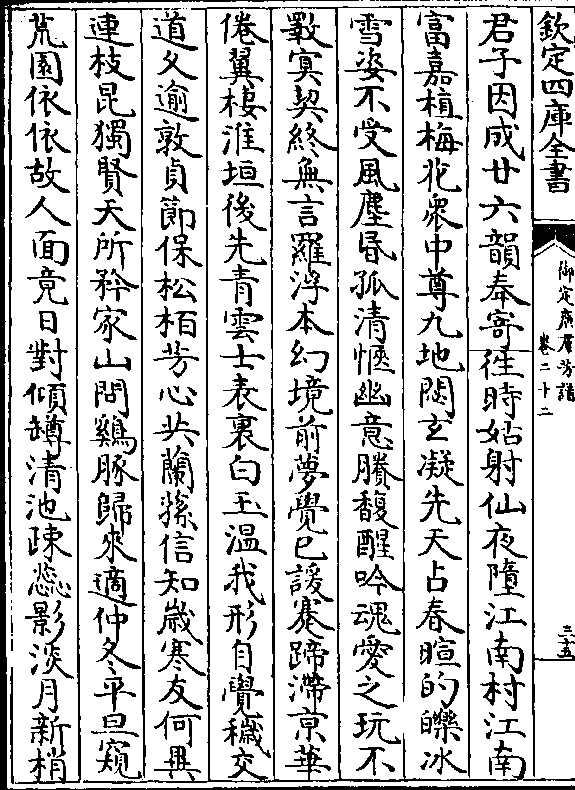 欽定四庫全書
御定廣羣芳譜
卷二十二
三十五
君子因成廿六韻奉寄徃時姑射仙夜墮江南村江南
富嘉植梅花衆中尊九地閟玄凝先天占春暄的皪冰
雪姿不受風塵昬孤清愜幽意賸馥醒吟魂愛之玩不
斁冥契終無言羅浮本幻境前夢覺已諼蹇蹄滯京華
倦翼棲淮垣後先青雲士表裏白玉温我形自覺穢交
道久逾敦貞節保松栢芳心共蘭蓀信知歳寒友何異
連枝昆獨賢天所矜家山問鷄豚歸來適仲冬平旦窺
荒園依依故人面竟日對傾罇清池踈蕊影淡月新梢